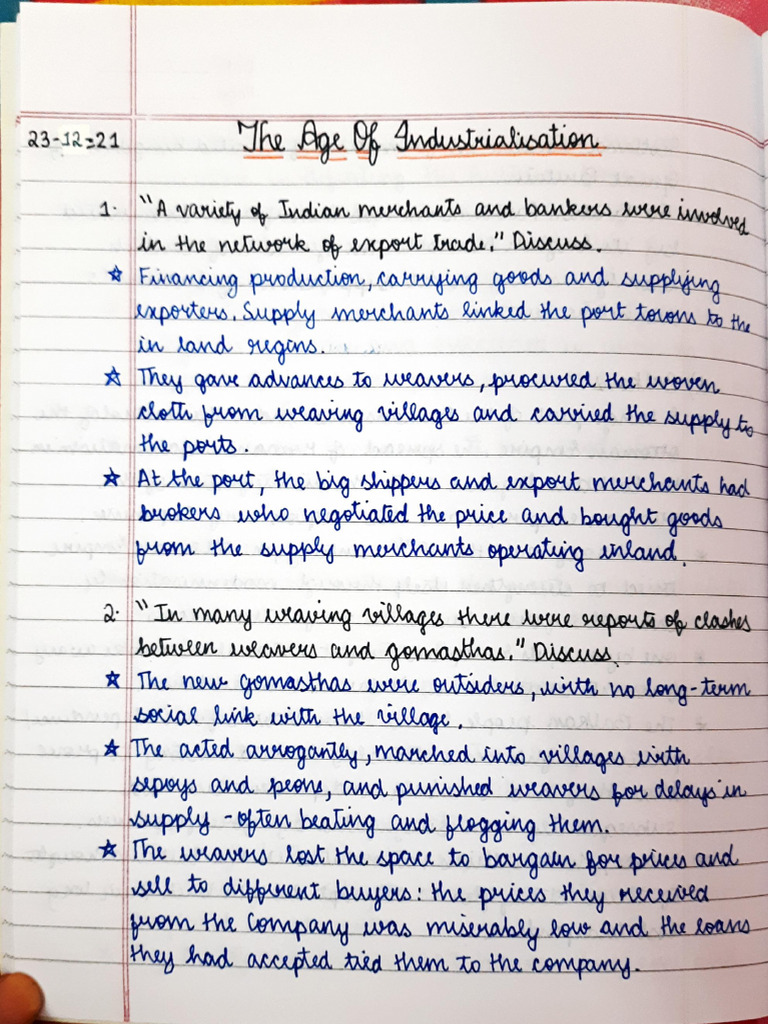 23-12-21 The Age Of Industrialisation
1. "A variety of Indian merchants and bankers were involved
in the network of export trade." Discuss.
☆ Financing production, carrying goods and supplying
exporters. Supply merchants linked the port towns to the
in land regins.
☆ They gave advances to weavers, procured the woven
cloth from weaving villages and carried the supply to
the ports.
☆ At the port, the big shippers and export merchants had
brokers who negotiated the price and bought goods
from the supply merchants operating inland.
2. "In many weaving villages there were reports of clashes
between weavers and gomasthas." Discuss.
☆ The new gomasthas were outsiders, with no long-term
social link with the village.
☆ The acted arrogantly, marched into villages with
sepoys and peons, and punished weavers for delays in
supply - often beating and flogging them.
☆ The weavers lost the space to bargain for prices and
sell to different buyers: the prices they received
from the Company was miserably low and the loans
they had accepted tied them to the company.